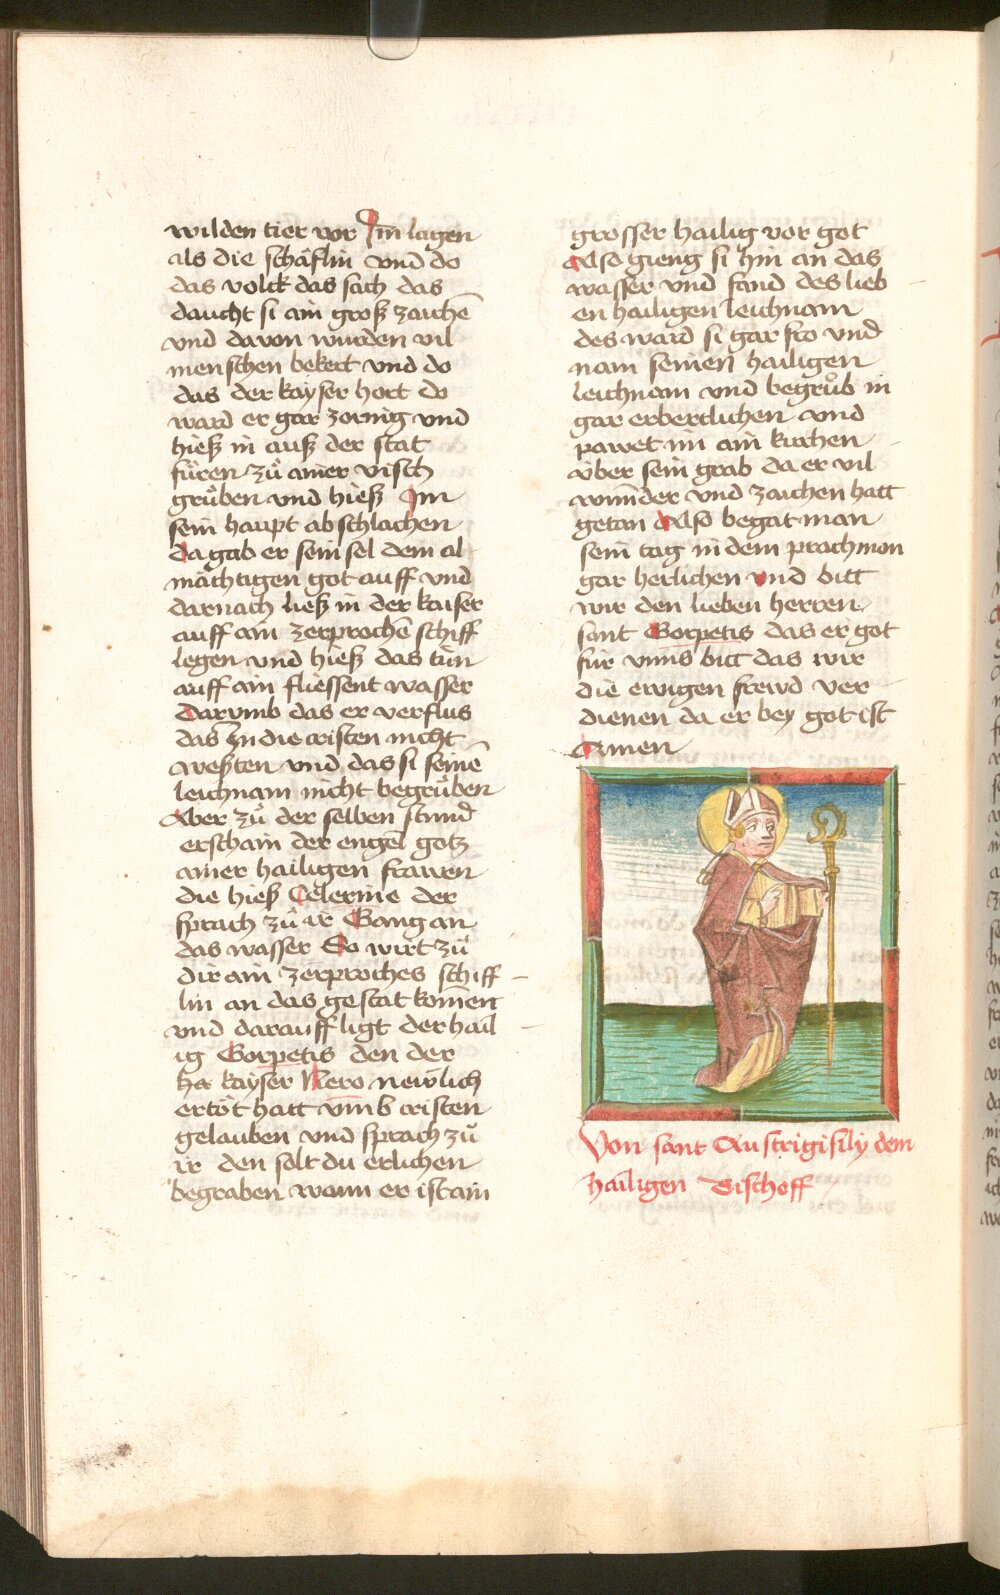 wilden tier vor Im lagen
als die schäflin vnd do
das volck das sach das
daucht si ain groß zaichē
vnd davon wurden vil
menschen bekert vnd do
das der kayser hort do
ward er gar zornig vnd
hieß in auß der stat
füren zů ainer visch
grůben vnd hieß Im
sein haupt ab schlachen
da gab er sein sel dem al
mächtigen got auff vnd
darnach ließ in der kaiser
auff ain zerprochē schiff
legen vnd hieß das tün
auff ain fliessent wasser
darvmb das er verflus
das In die cristen nicht
westen vnd das si seinē
leichnam nicht begrůben
Aber zů der selben stund
erschain der engel gotz
ainer hailigen frawen
die hieß Celerine der
sprach zů ir Gang an
das wasser So wirt zů
dir ain zerproches schiff
lin an das gestat komen
vnd darauff ligt der hail
ig Gorpetis den der
her kayser Nero newlich
ertöt hatt vmb cristen
gelauben vnd sprach zů
ir den solt du erlichen
begraben wann er ist ain
grosser hailig vor got
Also gieng si hin an das
wasser vnd fand des lieb
en hailigen leichnam
des ward si gar fro vnd
nam seinen hailigen
leichnam vnd begrůb in
gar erbertlichen vnd
pawet im ain kirchen
vber sein grab da er vil
wunder vnd zaichen hatt
getan Also begat man
sein tag in dem prachmon
gar herlichen vnd bitt
wir den lieben herren
sant Gorpetis das er got
für vnns bitt das wir
die ewigen frewd ver
dienen da er bey got ist
Amen
Von sant Austrigisily dem
hailigen Bischoff